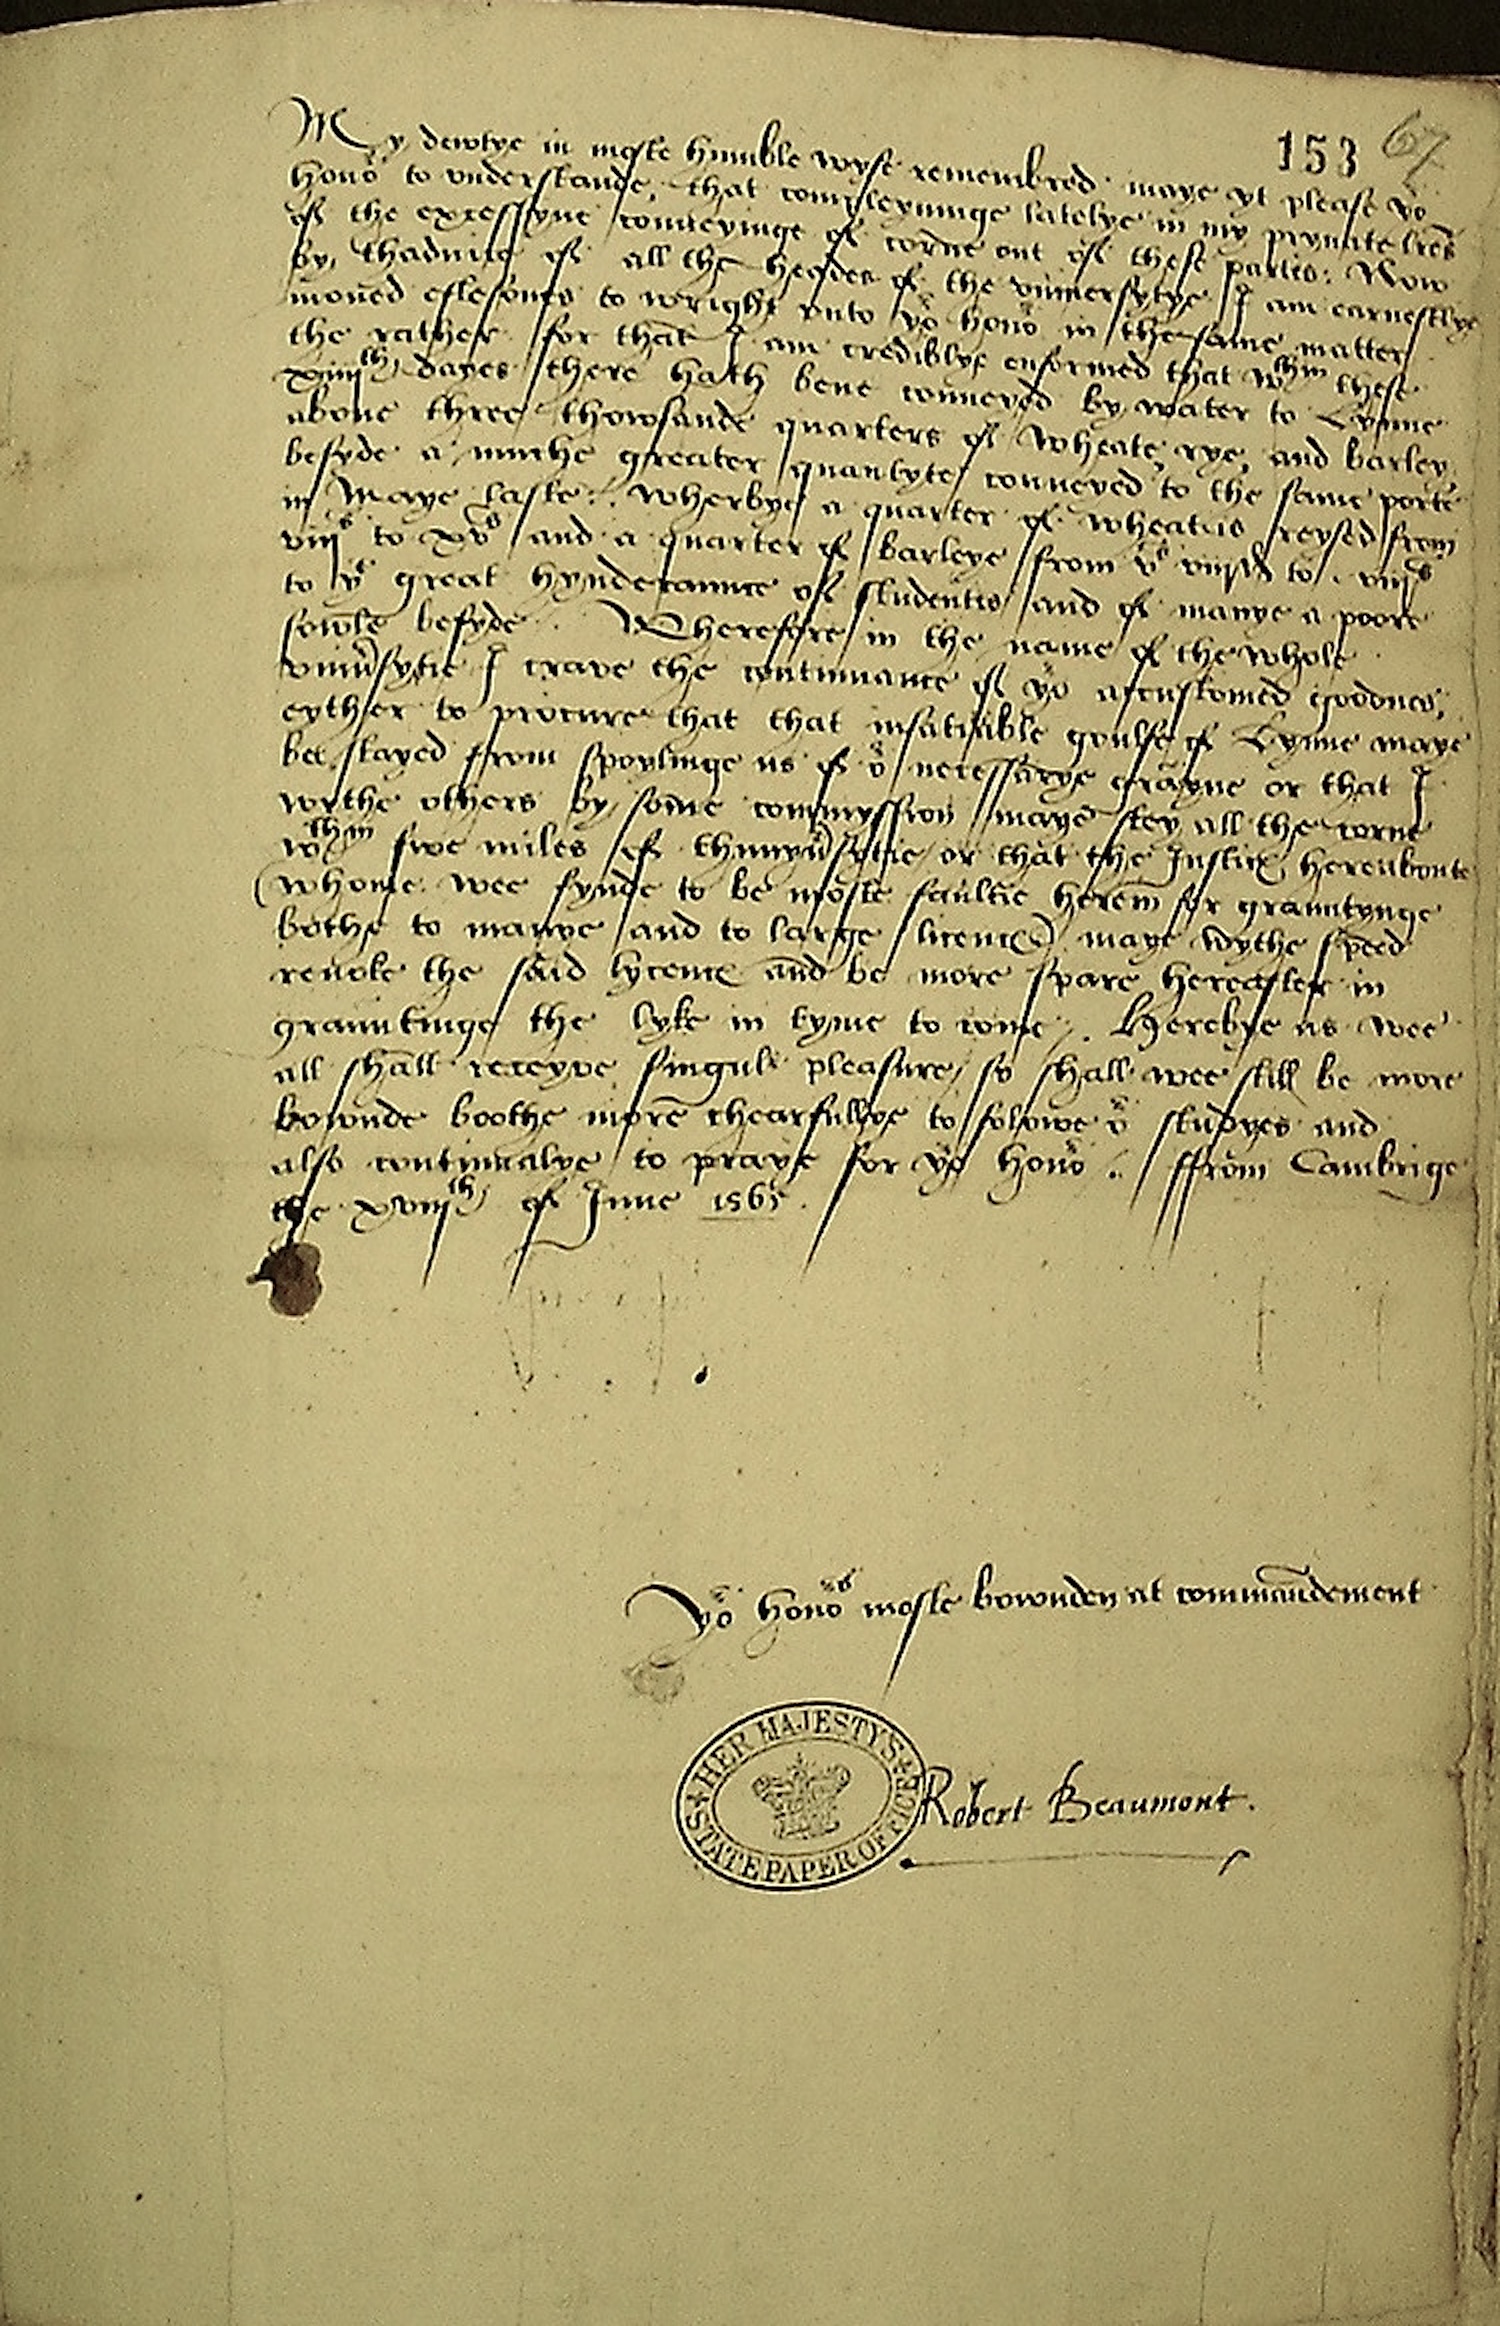 153 67
My dewtye in moste humble wyse remembred. maye yt please yor
honor to understande, that compleyninge latelye in my pryvate lrēs
of the excessyve conveyinge of corne out of these partes: Now
by thadvise of all the heades of the universytye I am earnestlye
moved eftesones to wright unto yor honor in the same matter
the rather for that I am crediblye enformed that wthin these
xiiiith dayes there hath bene conveyed by water to Lynne
above three thowsande quarters of wheate, rye, and barley
besyde a muche greater quantyte conveyed to the same porte
in Maye laste: wherbye a quarter of wheat is reysed from
viijs to xvs and a quarter of barleye from vs viijd to viijs
to ye great hynderaunce of studentes and of manye a poore
sowle besyde. Wherefore in the name of the whole
univrsytie I crave the continuance of yor accustomed goodnes,
eyther to procure that that insatiable goulfe of Lynne maye
bee stayed from spoylinge us of or necessarye grayne or that I
wythe others by some commyssion maye stey all the corne
wthin five miles of thunyvrsytie or that the Justices hereaboute
(whome wee fynde to be moste faultie herein for grauntynge
bothe to manye and to large licences) maye wythe speed
revoke the said lycences and be more spare hereafter in
grauntinge the lyke in tyme to come. Herebye as wee
all shall receyve singuler pleasure, so shall wee still be more
bownde boothe more chearfullye to folowe or studyes and
also continualye to praye for yor honor. ffrom Cambrige
the xviijth of June 1565.
Yor honors moste bownden at commaundement
HER MAJESTY'S STATE PAPER OFFICE
Robert Beaumont.